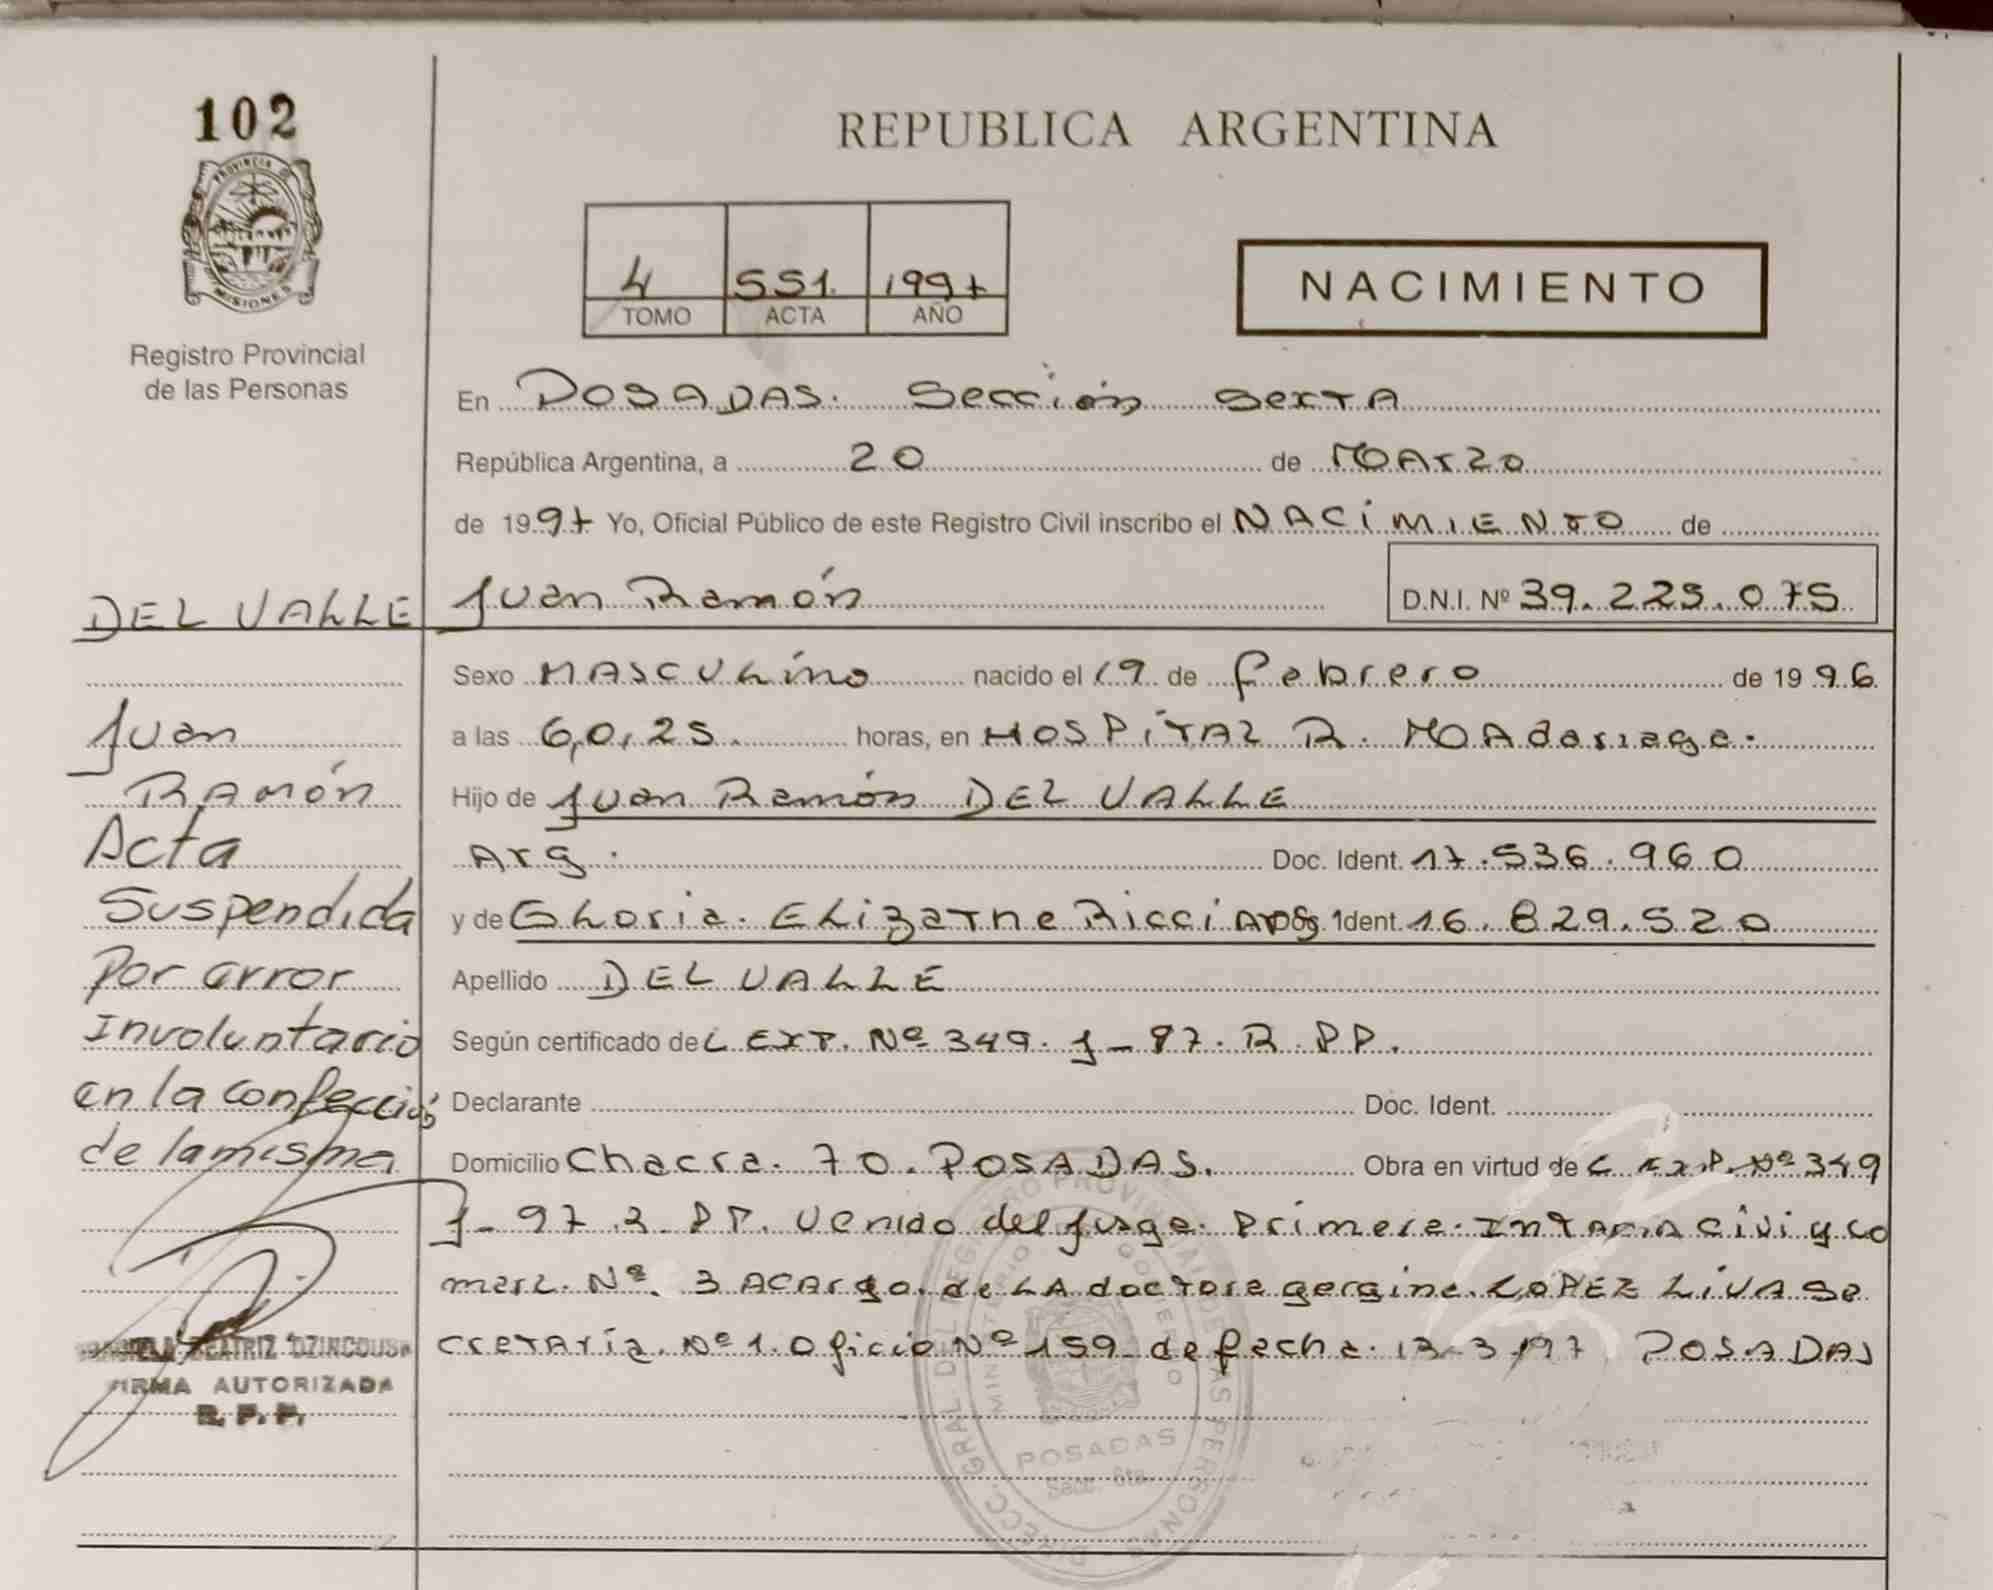 102
PROVINCIA D
MISIONES
Registro Provincial
de las Personas
REPUBLICA ARGENTINA
4 551. 1997
TOMO ACTA AÑO
NACIMIENTO
En POSADAS. Sección Sexta
República Argentina, a 20 de Marzo
de 1997 Yo, Oficial Público de este Registro Civil inscribo el NACIMIENTO de
DEL VALLE Juan Ramón D.N.I. Nº 39.225.075
Sexo MASCULino nacido el 19 de Febrero de 1996
a las 6,0,25. horas, en HOSPITAL R. MAdariaga.
Hijo de Juan Ramón DEL VALLE
Arg. Doc. Ident. 17.536.960
y de Gloria. Elizabthe Ricci Arg. Ident. 16.829.520
Apellido DEL VALLE
Según certificado del EXP. Nº 349. J-97. R.PP.
Declarante Doc. Ident.
Domicilio Chacra. 70. POSADAS. Obra en virtud de EXP. Nº 349
J-97.R.PP. Venido del Juzga. Primera. Civi y Co
merc. Nº. 3 ACArgo. de LA doctora LOPEZ LIVA Se
cretaría. Nº1. Oficio Nº159 de fecha. 13-3/97 POSADAS
Juan
Ramón
Acta
Suspendida
Por error
Involuntario
en la confección
de la misma
BEATRIZ DZINCOUSA
FIRMA AUTORIZADA
R.P.P.
DIRECC. GRAL DEL REGISTRO PROVINCIAL DE LAS PERSONAS
MINISTERIO GOBIERNO
POSADAS
Secc. 6ta.